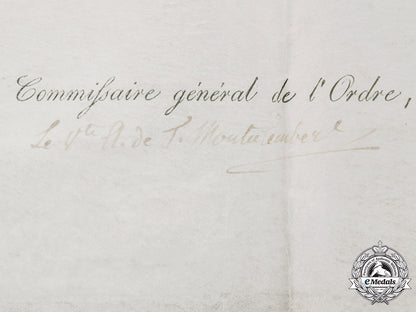 Commissaire général de l'Ordre,
Le Vte A. de
eMedals